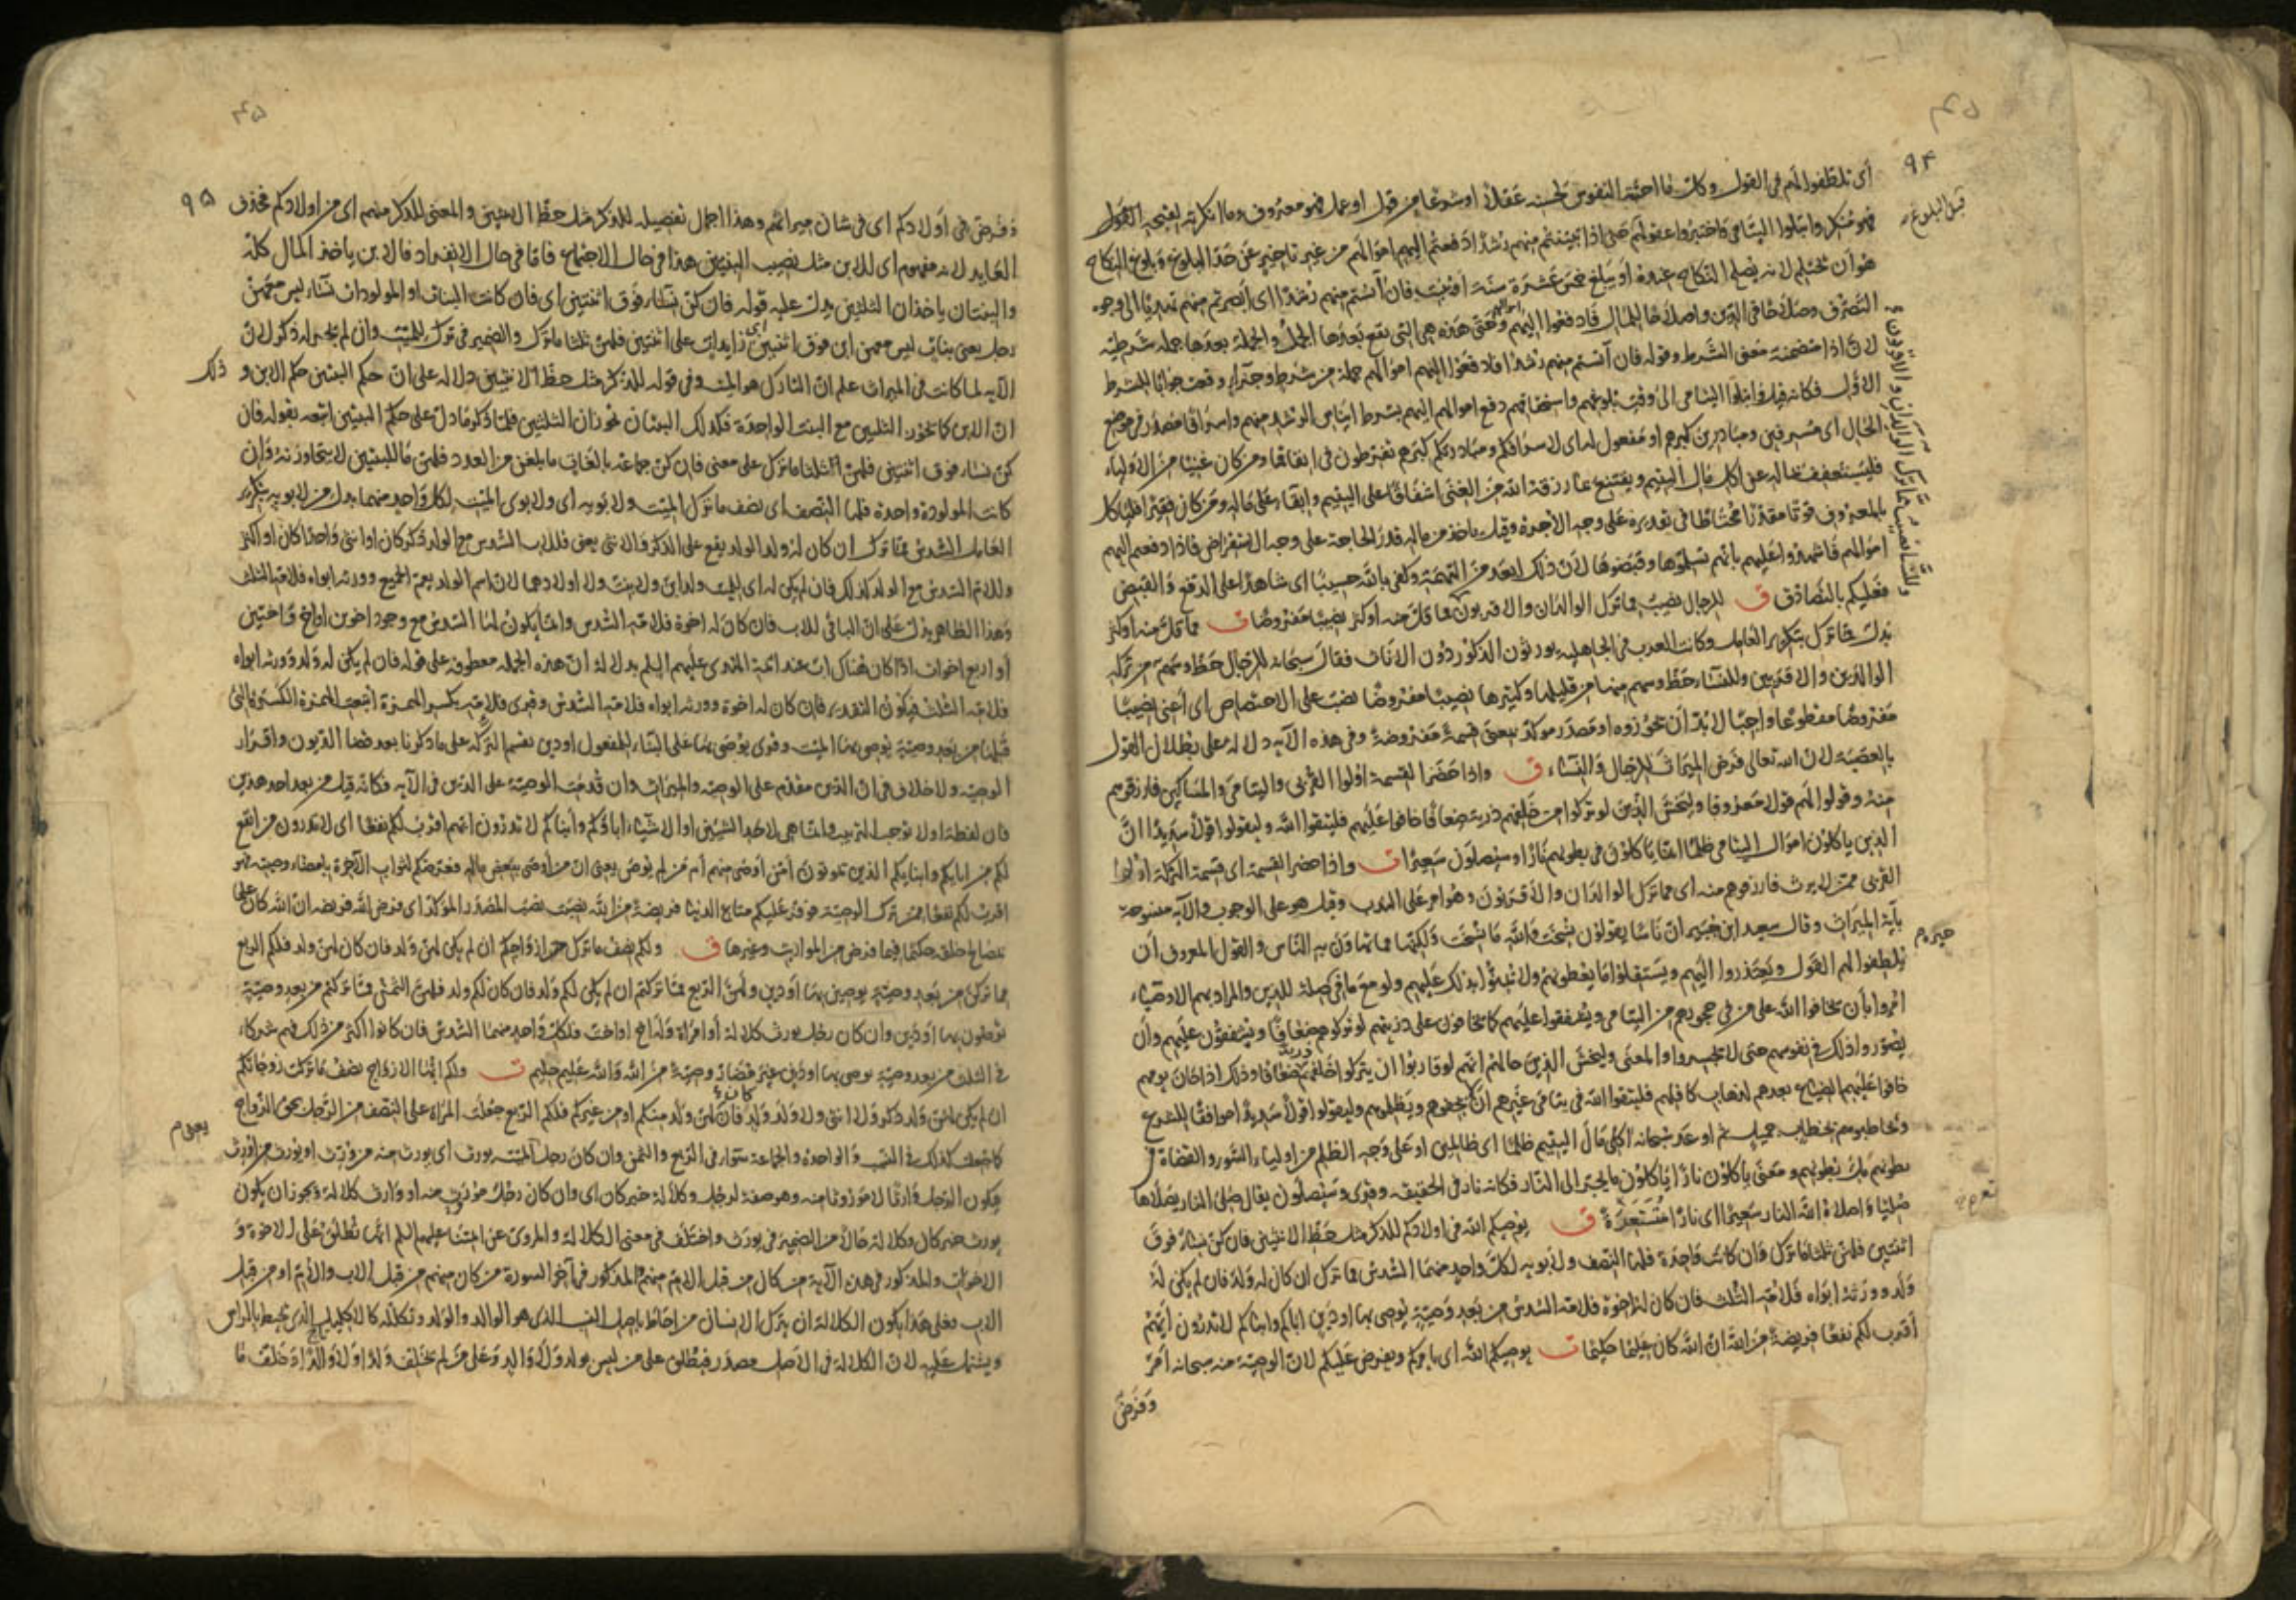 ٩٤
أي تلطفوا لهم في القول وكل ما احبته النفوس لحسنه عقلا او شرعا من قول او عمل فهو معروف وما انكرته لقبحه
قبل البلوغ
فهو منكر وابتلوا اليتامى واختبروا عقولهم حتى اذا تبينتم منهم رشدا دفعتم اليهم اموالهم من غير تاخير عن حد البلوغ وبلوغ النكاح
هو ان يحتلم لانه يصلح للنكاح عنده او يبلغ خمس عشرة سنة او ينبت فان آنستم منهم رشدا اى ابصرتم منهم تهديا الى وجوه
التصرف وصلاحا في الدين واصلاحا للمال فادفعوا اليهم اموالهم وحتى هذه هي التي تقع بعدها الجمل والجملة بعدها جملة شرطية
لان اذا متضمنة معنى الشرط وقوله فان آنستم منهم رشدا فادفعوا اليهم اموالهم جملة من شرط وجزاء وقعت جوابا للشرط
الاول فكانه قيل وابتلوا اليتامى الى وقت بلوغهم واستحقاقهم دفع اموالهم اليهم بشرط ايناس الرشد منهم واسرافا مصدر في موضع
الحال اى مسرفين ومبادرين كبرهم او مفعول له اى لاسرافكم ومبادرتكم كبرهم تفرطون في انفاقها ومن كان غنيا من الاولياء
فليستعفف بماله عن اكل مال اليتيم ويقتنع بما رزقه الله من الغنى اشفاقا على اليتيم وابقاء على ماله ومن كان فقيرا فلياكل
بالمعروف قوتا مقدرا محتاطا في تقديره على وجه الاجرة وقيل ياخذ من ماله قدر الحاجة على وجه الاستقراض فاذا دفعتم اليهم
اموالهم فاشهدوا عليهم بانهم تسلموها وقبضوها لان ذلك ابعد من التهمة وكفى بالله حسيبا اى شاهدا على الدفع والقبض
فعليكم بالتصادق ق للرجال نصيب مما ترك الوالدان والاقربون مما قل منه او كثر نصيبا مفروضا ت مما قل منه او كثر
وللنساء نصيب مما ترك الوالدان والاقربون
بدل مما ترك بتكرير العامل وكانت العرب في الجاهلية يورثون الذكور دون الاناث فقال سبحانه للرجال حظ وسهم من تركة
الوالدين والاقربين وللنساء حظ وسهم منها من قليلها وكثيرها نصيبا مفروضا نصب على الاختصاص اى أعني نصيبا
مفروضا مقطوعا واجبا لا بد ان يحوزوه او مصدر موكد بمعنى قسمة مفروضة وفي هذه الآية دلالة على بطلان القول
بالعصبة لان الله تعالى فرض الميراث للرجال والنساء ق واذا حضر القسمة اولوا القربى واليتامى والمساكين فارزقوهم
منه وقولوا لهم قولا معروفا وليخش الذين لو تركوا من خلفهم ذرية ضعافا خافوا عليهم فليتقوا الله وليقولوا قولا سديدا ان
الذين ياكلون اموال اليتامى ظلما انما ياكلون في بطونهم نارا وسيصلون سعيرا ت واذا حضر القسمة اى قسمة التركة اولوا
القربى ممن لا يرث فارزقوهم منه اى مما ترك الوالدان والاقربون وهو امر على الندب وقيل هو على الوجوب والآية منسوخة
بآية الميراث وقال سعيد ابن جبير ان ناسا يقولون نسخت والله ما نسخت ولكنها مما تهاون به الناس والقول المعروف ان
يلطفوا لهم القول ويعتذروا اليهم ويستقلوا ما يعطونهم ولا يمنوا بذلك عليهم ولو مع ما في صلة للذين والمراد بهم الاوصياء
امروا بان يخافوا الله على من في حجورهم من اليتامى ويشفقوا عليهم كما يخافون على ذريتهم لو تركوهم ضعافا ويشفقون عليهم وان
يصوروا ذلك في نفوسهم حتى لا يجسروا والمعنى وليخش الذين حالهم انهم لو قاربوا ان يتركوا خلفهم ذرية ضعافا وذلك اذا حان يومهم
خافوا عليهم الضياع بعدهم لذهاب كافلهم فليتقوا الله في يتامى غيرهم ان يجفوهم ويظلموهم وليقولوا قولا سديدا موافقا للشرع
ويخاطبوهم بخطاب جميل ثم اوعد سبحانه آكلي مال اليتيم ظلما اى ظالمين او على وجه الظلم من اولياء السوء والقضاة في
بطونهم ملء بطونهم ومعنى ياكلون نارا ياكلون ما يجر الى النار فكانه نار في الحقيقة وقرئ وسيصلون يقال صلى النار يصلاها
صليا واصلاه الله النار سعيرا اى نارا مستعرة ق يوصيكم الله في اولادكم للذكر مثل حظ الانثيين فان كن نساء فوق
اثنتين فلهن ثلثا ما ترك وان كانت واحدة فلها النصف ولابويه لكل واحد منهما السدس مما ترك ان كان له ولد فان لم يكن له
ولد وورثه ابواه فلامه الثلث فان كان له اخوة فلامه السدس من بعد وصية يوصي بها او دين اباكم وابناكم لا تدرون ايهم
أقرب لكم نفعا فريضة من الله ان الله كان عليما حكيما ت يوصيكم الله اى يامركم ويفرض عليكم لان الوصية منه سبحانه امر
وفرض
٩٥
وفرض في اولادكم اى في شان ميراثهم وهذا اجمال تفصيله للذكر مثل حظ الانثيين والمعنى للذكر منهم اى من اولادكم فحذف
العايد لانه مفهوم اى للابن مثل نصيب البنتين هذا في حال الاجتماع فاما في حال الانفراد فالابن ياخذ المال كله
والبنتان ياخذان الثلثين يدل عليه قوله فان كن نساء فوق اثنتين اى فان كانت البنات او المولودات نساء ليس معهن
رجل يعني بنات ليس معهن ابن فوق اثنتين اى زايدات على اثنتين فلهن ثلثا ما ترك والضمير في ترك للميت وان لم يجر له ذكر لان
الآية لما كانت في الميراث علم ان التارك هو الميت وفي قوله للذكر مثل حظ الانثيين دلالة على ان حكم البنتين حكم الابن و ذلك
ان الابن كما يحوز الثلثين مع البنت الواحدة فكذلك البنتان تحوزان الثلثين فلما ذكر ما دل على حكم البنتين اتبعه بقوله فان
كن نساء فوق اثنتين فلهن ثلثا ما ترك على معنى فان كن جماعة بالغات ما بلغن من العدد فلهن ما للبنتين لا يتجاوزنه وان
كانت المولودة واحدة فلها النصف اى نصف ما ترك الميت ولابويه اى ولابوي الميت لكل واحد منهما بدل من لابويه بتكرير
العامل السدس مما ترك ان كان له ولد الولد يقع على الذكر والانثى يعني فللاب السدس مع الولد ذكر كان او انثى واحدا كان او اكثر
وللام السدس مع الولد كذلك فان لم يكن له اى للميت ولد ابن ولا بنت ولا اولادهما لان اسم الولد يعم الجميع وورثه ابواه فلامه الثلث
وهذا الظاهر يدل على ان الباقي للاب فان كان له اخوة فلامه السدس وانما يكون لها السدس مع وجود اخوين او اخ واختين
او اربع اخوات اذا كان هناك اب عند ائمة الهدى عليهم السلم بدلالة ان هذه الجملة معطوفة على قوله فان لم يكن له ولد وورثه ابواه
فلامه الثلث فيكون التقدير فان كان له اخوة وورثه ابواه فلامه السدس وقرئ فلامه بكسر الهمزة اتبعت الهمزة الكسرة التي
قبلها من بعد وصية يوصي بها الميت وقرئ يوصى بها على البناء للمفعول او دين تقسم التركة على ما ذكرنا بعد قضاء الديون واقرار
الوصية ولا خلاف في ان الدين مقدم على الوصية والميراث وان قدمت الوصية على الدين في الآية فكانه قيل من بعد احد هذين
فان لفظة او لا توجب الترتيب وانما هي لاحد الشيئين او الاشياء اباؤكم وأبناكم لا تدرون ايهم اقرب لكم نفعا اى لا تدرون من انفع
لكم من ابايكم وابنايكم الذين يموتون أمن اوصى منهم أم من لم يوص يعني ان من أوصى ببعض ماله فعرضكم لثواب الآخرة بامضاء وصيته فهو
اقرب لكم نفعا ممن ترك الوصية فوفر عليكم متاع الدنيا فريضة من الله نصبت نصب المصدر المؤكد اى فرض الله فريضة ان الله كان عليما
بمصالح خلقه حكيما فيما فرض من المواريث وغيرها ق ولكم نصف ما ترك ازواجكم ان لم يكن لهن ولد فان كان لهن ولد فلكم الربع
مما تركن من بعد وصية يوصين بها او دين ولهن الربع مما تركتم ان لم يكن لكم ولد فان كان لكم ولد فلهن الثمن مما تركتم من بعد وصية
توصون بها او دين وان كان رجل يورث كلالة أو امرأة وله اخ او اخت فلكل واحد منهما السدس فان كانوا اكثر من ذلك فهم شركاء
في الثلث من بعد وصية يوصى بها او دين غير مضار وصية من الله والله عليم حليم ت ولكم ايها الازواج نصف ما تركت زوجاتكم
ان لم يكن لهن ولد ذكر ولا انثى ولا ولد ولد فان كان لهن ولد منكم او من غيركم فلكم الربع جعلت المرأة على النصف من الرجل بحق الزواج
كما جعلت كذلك في النسب والواحدة والجماعة سواء في الربع والثمن وان كان رجل الميت يورث اى يورث منه من ورث او يورث من اورث
فيكون الرجل وارثا لا موروثا منه وهو صفة لرجل وكلالة خبر كان اى وان كان رجل موروث منه او وارث كلالة ويجوز ان يكون
يورث خبر كان وكلالة حالا من الضمير في يورث واختلف في معنى الكلالة والمروي عن ائمتنا عليهم السلم انها تطلق على الاخوة و
الاخوات والمذكور في هذه الآية من كان من قبل الام منهم والمذكور في آخر السورة من كان منهم من قبل الاب والام او من قبل
الاب فعلى هذا يكون الكلالة ان يترك الانسان من احاط باصل النسب الذي هو الوالد والولد وتكلله كالاكليل الذي يحيط بالراس
ويشتمل عليه لان الكلالة في الاصل مصدر فيطلق على من ليس بولد ولا والد وعلى من لم يخلف ولدا ولا والدا وخلف ما